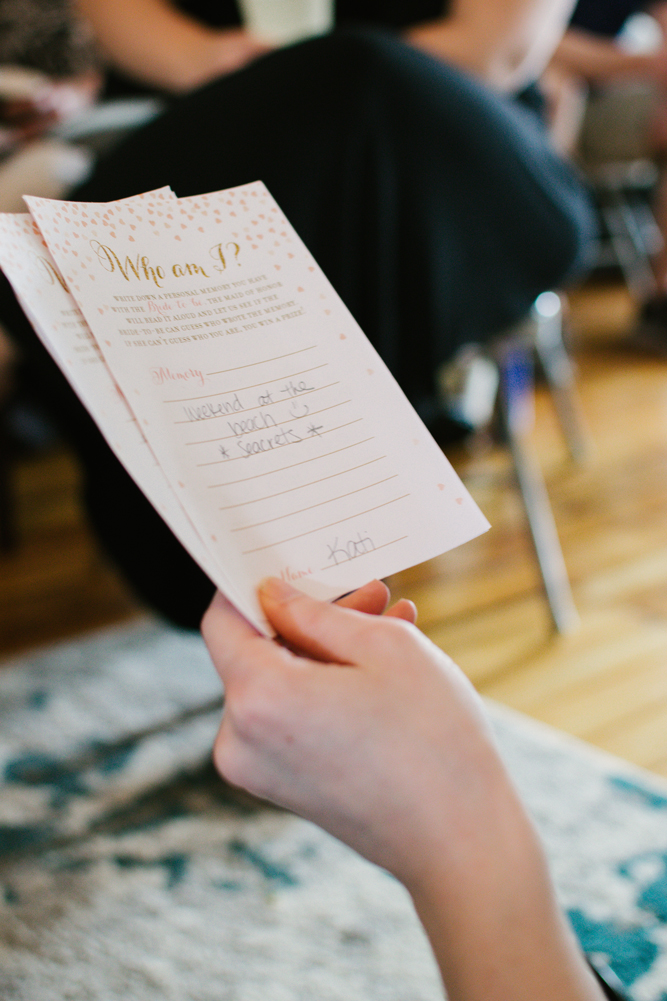 Who am I?
WRITE DOWN A PERSONAL MEMORY YOU HAVE
WITH THE Bride to be. THE MAID OF HONOR
WILL READ IT ALOUD AND LET US SEE IF THE
BRIDE-TO-BE CAN GUESS WHO WROTE THE MEMORY.
IF SHE CAN'T GUESS WHO YOU ARE, YOU WIN A PRIZE!
Memory
Weekend at the
beach
* Seacrets *
Name Kati